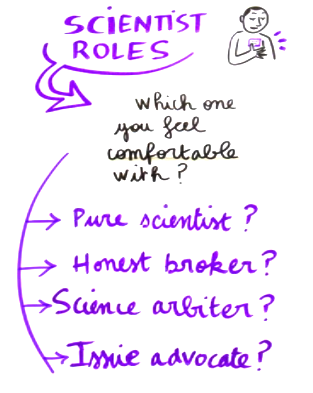 SCIENTIST
ROLES
Which one
you feel
comfortable
with?
Pure scientist?
Honest broker?
Science arbiter?
Issue advocate?